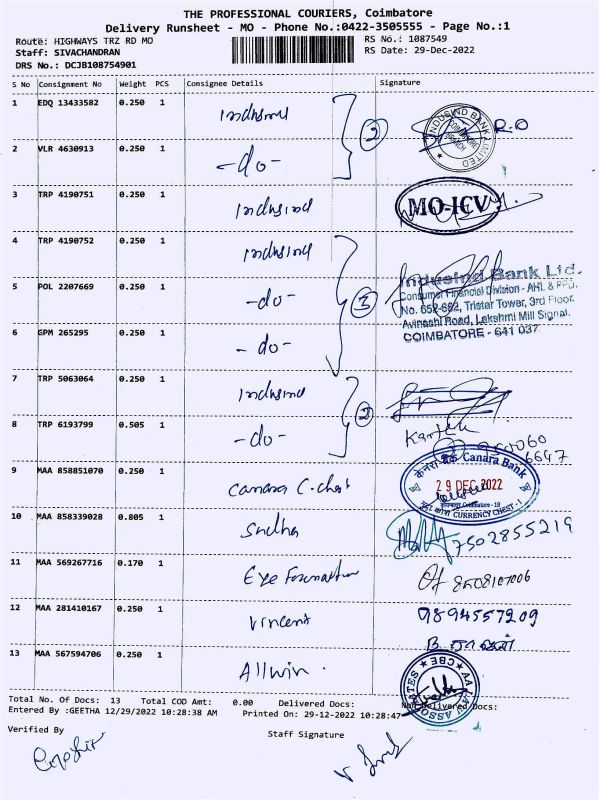 THE PROFESSIONAL COURIERS, Coimbatore
Delivery Runsheet - MO - Phone No.:0422-3505555 - Page No.:1
Route: HIGHWAYS TRZ RD MO
RS No.: 1087549
Staff: SIVACHANDRAN
RS Date: 29-Dec-2022
DRS No.: DCJB108754901
S No Consignment No Weight PCS Consignee Details Signature
1 EDQ 13433582 0.250 1 Indusind
2
R.O
INDUSIND BANK LIMITED
2 VLR 4630913 0.250 1 -do-
3 TRP 4190751 0.250 1 Indusind
MO-ICV
4 TRP 4190752 0.250 1 Indusind
3
IndusInd Bank Ltd.
Consumer Financial Division - AHL & PPD,
5 POL 2207669 0.250 1 -do-
No. 652-662, Tristar Tower, 3rd Floor,
Avinashi Road, Lakshmi Mill Signal,
COIMBATORE - 641 037
6 GPM 265295 0.250 1 -do-
7 TRP 5063064 0.250 1 Indusind
2
8 TRP 6193799 0.505 1 -do-
6647
9 MAA 858851070 0.250 1 Canara C. chest
केनरा बैंक Canara Bank
29 DEC 2022
Coimbatore - 18
CURRENCY CHEST - 1
10 MAA 858339028 0.805 1 Sudha
7502855219
11 MAA 569267716 0.170 1 Eye Foundation
12 MAA 281410167 0.250 1 Vincent
9894557209
13 MAA 567594706 0.250 1 Allwin.
ASSOCIATES
CBE
Total No. Of Docs: 13 Total COD Amt: 0.00 Delivered Docs: Non Delivered Docs:
Entered By :GEETHA 12/29/2022 10:28:38 AM Printed On: 29-12-2022 10:28:47
Verified By
Staff Signature